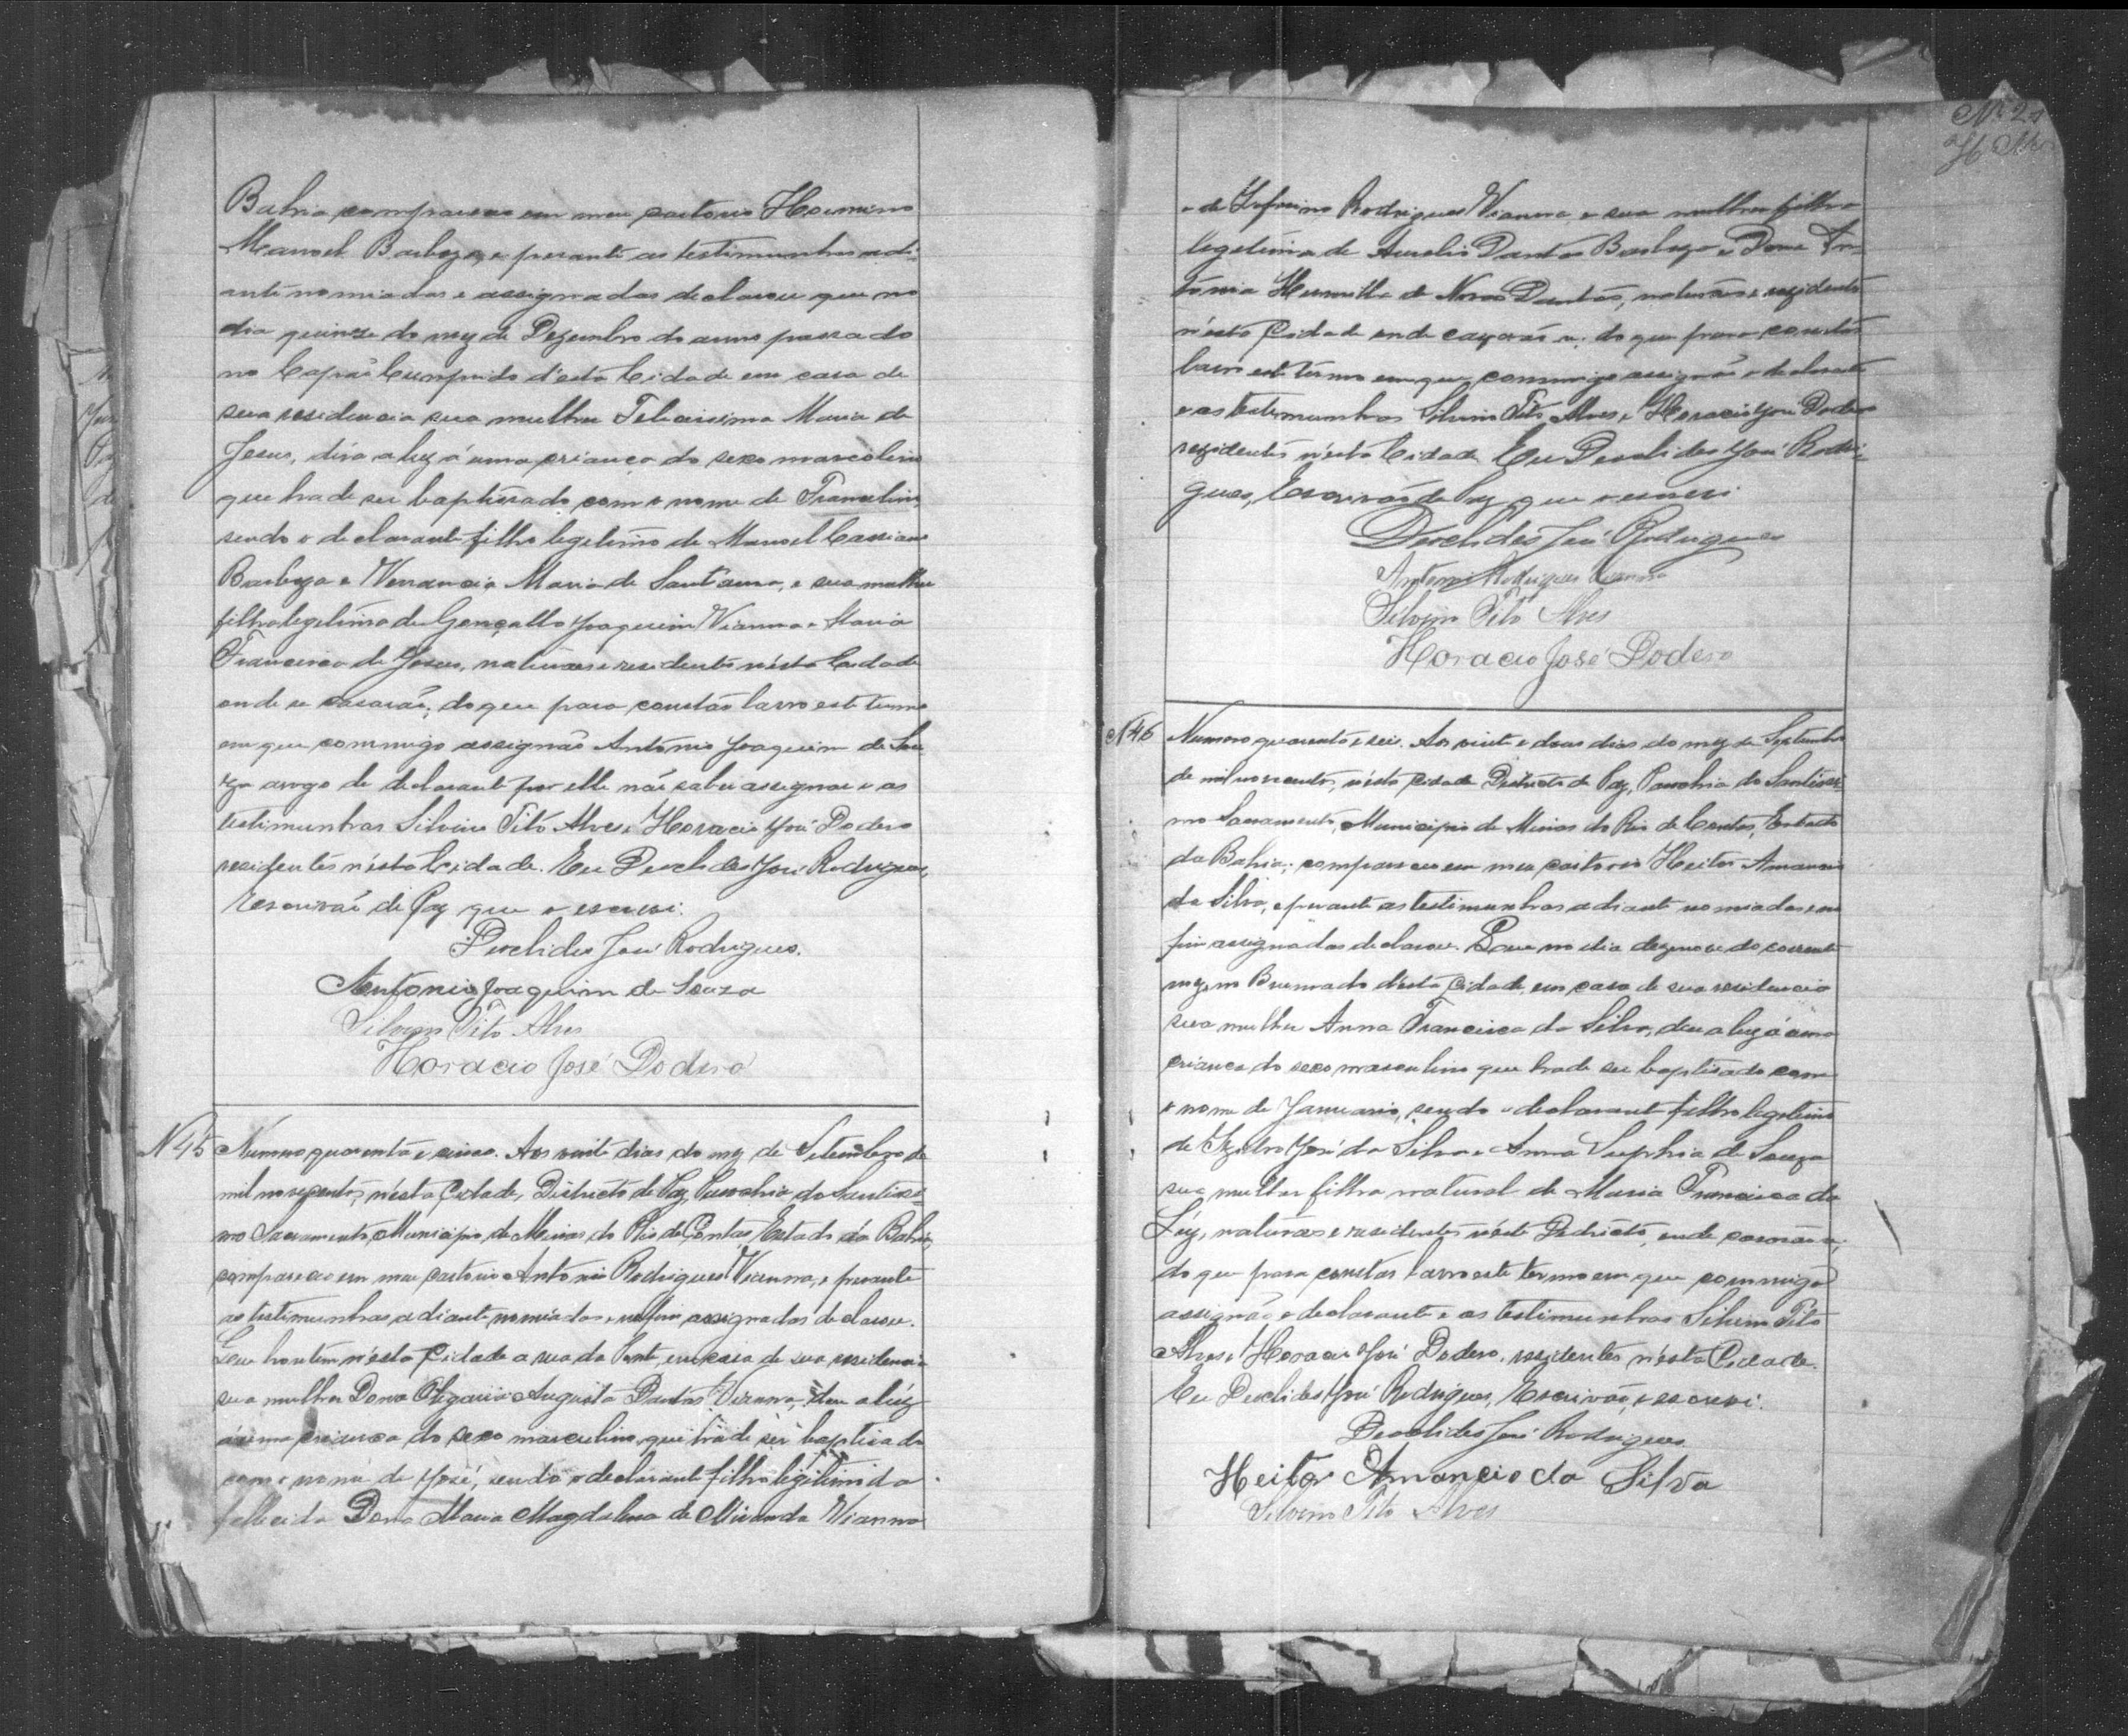 Bahia compareceu em meu cartorio Hermino
Manoel Barboza, e perante as testimunhas adi-
ante nomiadas e assignadas declarou que no
dia quinze do mez de Dezembro do anno passado
no Capão Cumprido d'esta Cidade em casa de
sua residencia sua mulher Felicissima Maria de
Jesus, dera a luz á uma criança do sexo masculino
que hade ser baptisado com o nome de Francelino,
sendo o declarante filho legitimo de Manoel Cassiano
Barboza e Venrancia Maria de Sant'anna, e sua mulher
filha legitima de Gonçallo Joaquim Vianna e Maria
Francisca de Jesus, naturaes e residentes nésta Cidade
onde se casarão; do que para constar lavro este termo
em que commigo assignão Antonio Joaquim de Sou
za arogo de declarante por elle não saber assignar e as
testimunhas Silvino Tito Alves e Horacio José Dodero
residentes nésta Cidade. Eu Deoclides José Rodrigues,
Escrivão de Paz que o escrevi.
Deoclides José Rodrigues.
Antonio Joaquim de Souza
Silvino Tito Alves
Horacio José Dodero
N 45 Numero quarenta e cinco. Aos vinte dias do mez de Setembro de
mil novecentos, nésta Cidade, Districto de Paz, Parochia do Santissi-
mo Sacramento, Municipio de Minas do Rio de Contas, Estado da Bahia,
compareceu em meu cartorio Antonio Rodrigues Vianna, e perante
as testimunhas adiante nomiadas e no fim assignadas declarou.
Que hontem nésta Cidade a rua da Ponte, em casa de sua residencia
sua mulher Dona Olegaria Augusta Dantas Vianna, deu a lúz
á uma criança do sexo masculino, que hade ser baptisado
com o nome de José, sendo o declarante filho legitimo da
fallecida Dona Maria Magdalena de Miranda Vianna
e de Rodrigues Vianna e sua mulher filha
legitima de Aurelio Dantas Barboza e Dona An-
tonia Hermilla de Novaes Dantas, naturaes e rezidentes
nésta Cidade onde cazarão-se; do que para constar
lavro este termo em que commigo assignão o declarante
e as testemunhas Silvino Tito Alves e Horacio José Dodero
rezidentes nésta Cidade. Eu Deoclides José Rodri-
gues, Escrivão de Paz que o escrevi
Deoclides José Rodrigues
Antonio Rodrigues Vianna
Silvino Tito Alves
Horacio José Dodero
N 46 Numero quarenta e seis. Aos vinte e dous dias do mez de Septembro
de mil novecentos, nésta Cidade Districto de Paz, Parochia do Santissi-
mo Sacramento, Municipio de Minas do Rio de Contas, Estado
da Bahia; compareceu em meu cartorio Heitor Amancio
da Silva, e perante as testimunhas adiante nomiadas e no
fim assignadas declarou. Que no dia dezenove do corrente
mez no Brumado d'esta Cidade, em casa de sua residencia
sua mulher Anna Francisca da Silva, deu a luz á uma
criança do sexo masculino que hade ser baptisado com
o nome de Januario, sendo o declarante filho legitimo
de José da Silva e Anna Suphia de Souza
sua mulher filha natural de Maria Francisca da
Lúz, naturaes e residentes néste Districto, onde casarão-se;
do que para constar lavro este termo em que commigo
assignão o declarante e as testimunhas Silvino Tito
Alves e Horacio José Dodero, rezidentes nésta Cidade.
Eu Deoclides José Rodrigues, Escrivão, o escrevi.
Deoclides José Rodrigues.
Heitor Amancio da Silva
Silvino Tito Alves